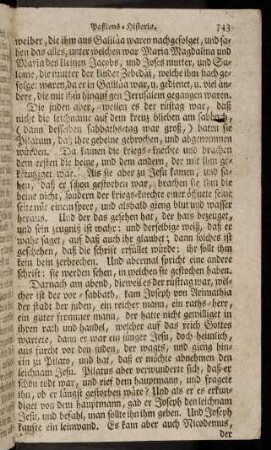 Passions-Historie. 743
weiber, die ihm aus Galiläa waren nachgefolget, und sa-
hen das alles, unter welchen war Maria Magdalina und
Maria des kleinen Jacobs, und Joses mutter, und Sa-
lome, die mutter der kinder Zebedäi, welche ihm nach ge-
folget waren, da er in Galiläa war, u. gedienet, u. viel an-
dere, die mit ihm hinauf gen Jerusalem gegangen waren.
Die juden aber, weilen es der rüsttag war, daß
nicht die leichname auf dem kreutz blieben am sabbath,
( dann desselben sabbaths-tag war groß, ) baten sie
Pilatum, daß ihre gebeine gebrochen, und abgenommen
würden. Da kamen die kriegs-knechte und brachen
dem ersten die beine, und dem andern, der mit ihm ge-
kreutziget war. Als sie aber zu Jesu kamen, und sa-
hen, daß er schon gestorben war, brachen sie ihm die
beine nicht, sondern der kriegs-knechte einer öffnete seine
seite mit einem speer, und alsbald gieng blut und wasser
heraus. Und der das gesehen hat, der hats bezeuget,
und sein zeugniß ist wahr: und derselbige weiß, daß er
wahr saget, auf daß auch ihr glaubet; dann solches ist
geschehen, daß die schrift erfüllet würde: ihr sollt ihm
kein bein zerbrechen. Und abermal spricht eine andere
schrift: sie werden sehen, in welchen sie gestochen haben.
Darnach am abend, dieweil es der rüsttag war, wel-
cher ist der vor-sabbath, kam Joseph von Arimathia
der stadt der juden, ein reicher mann, ein raths-herr,
ein guter frommer mann, der hatte nicht gewilliget in
ihren rath und handel, welcher auf das reich Gottes
wartete, dann er war ein jünger Jesu, doch heimlich,
aus furcht vor den juden, der wagts, und gieng hin-
ein zu Pilato, und bat, daß er möchte abnehmen den
leichnam Jesu. Pilatus aber verwunderte sich, daß er
schon todt war, und rief dem hauptmann, und fragete
ihn, ob er längst gestorben wäre? Und als er es erkun-
diget von dem hauptmann, gab er Joseph den leichnam
Jesu, und befahl, man sollte ihn ihm geben. Und Joseph
kaufte ein leinwand. Es kam aber auch Nicodemus,
der